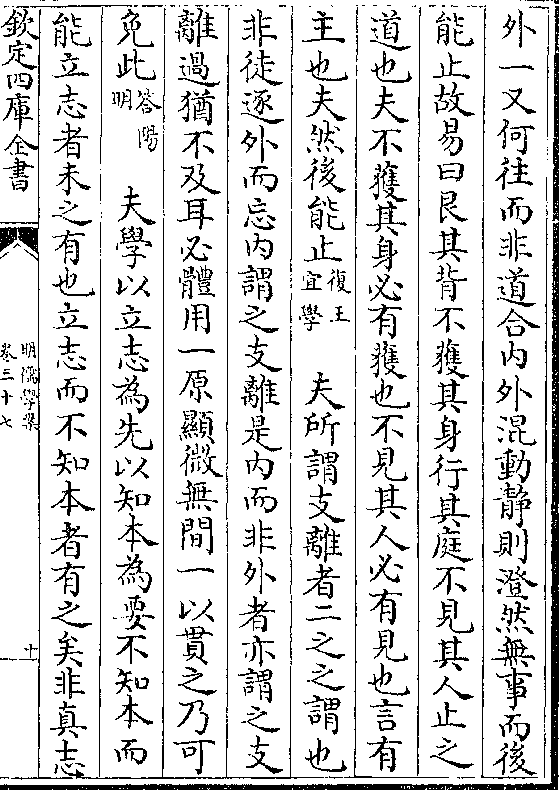 外一又何往而非道合内外混動静則澄然無事而後
能止故易曰艮其背不獲其身行其庭不見其人止之
道也夫不獲其身必有獲也不見其人必有見也言有
主也夫然後能止復王宜學　夫所謂支離者二之之謂也
非徒逐外而忘内謂之支離是内而非外者亦謂之支
離過猶不及耳必體用一原顯微無間一以貫之乃可
免此答陽明　夫學以立志為先以知本為要不知本而
能立志者未之有也立志而不知本者有之矣非真志
欽定四庫全書
明儒學案
卷三十七
十